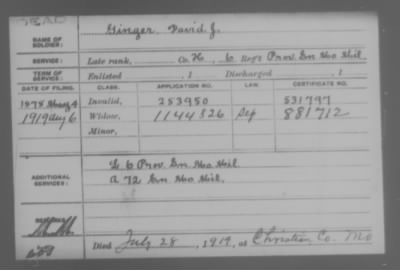 DEAD
NAME OF SOLDIER: Ginger, David J.
SERVICE: Late rank, Co. H, 6 Reg't Prov. En Mo Mil.
TERM OF SERVICE: Enlisted , 1 Discharged , 1
DATE OF FILING. CLASS. APPLICATION NO. LAW. CERTIFICATE NO.
1878 4 Invalid, 253950 531797
1919 Aug 6 Widow, 1144326 Sep 881712
Minor,
ADDITIONAL SERVICES: L 6 Prov. En Mo Mil
A 72 En Mo Mil.
REMARKS:
Died July 28, 1919, at Christian Co. Mo